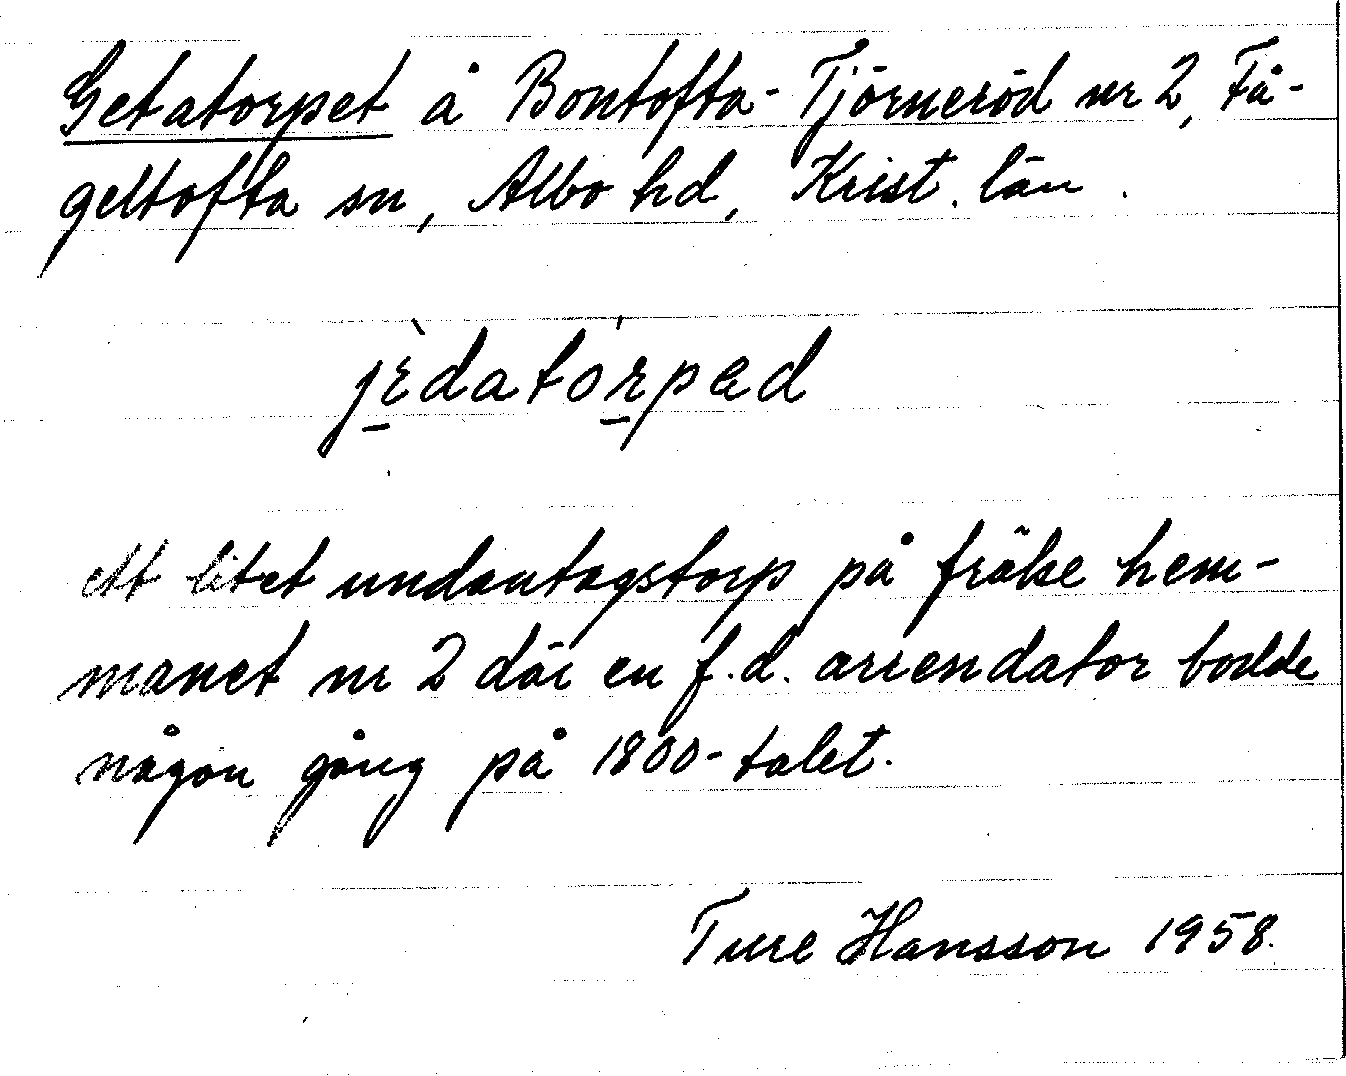 Getatorpet å Bontofta-Tjörneröd nr 2, Få-
geltofta sn, Albo hd, Krist. län.
jèdatórpæd
ett litet undantagstorp på frälse hem-
manet nr 2 där en f.d. arrendator bodde
någon gång på 1800-talet.
Ture Hansson 1958.